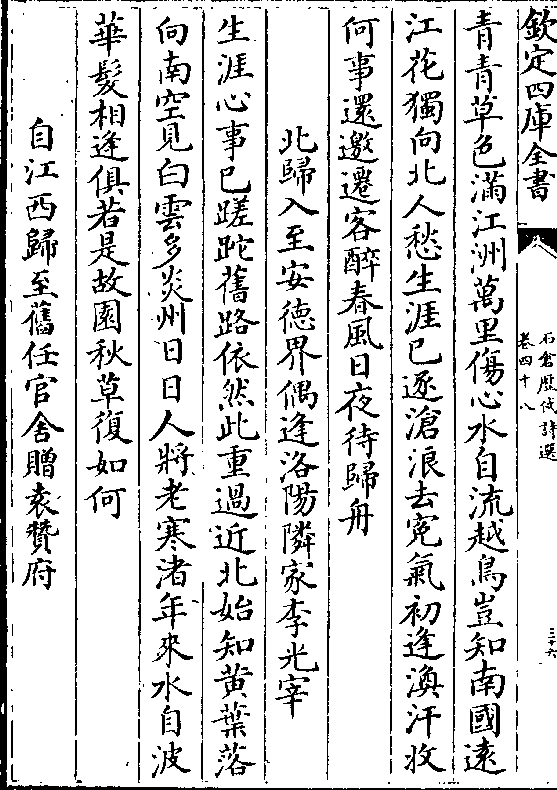 欽定四庫全書
石倉歷代詩選
卷四十八
三十六
青青草色滿江洲萬里傷心水自流越鳥豈知南國遠
江花獨向北人愁生涯已逐滄浪去寃氣初逢渙汗收
何事還邀遷客醉春風日夜待歸舟
北歸入至安德界偶逢洛陽隣家李光宰
生涯心事已蹉跎舊路依然此重過近北始知黄葉落
向南空見白雲多炎州日日人將老寒渚年來水自波
華髮相逢俱若是故園秋草復如何
自江西歸至舊任官舍贈袁贊府